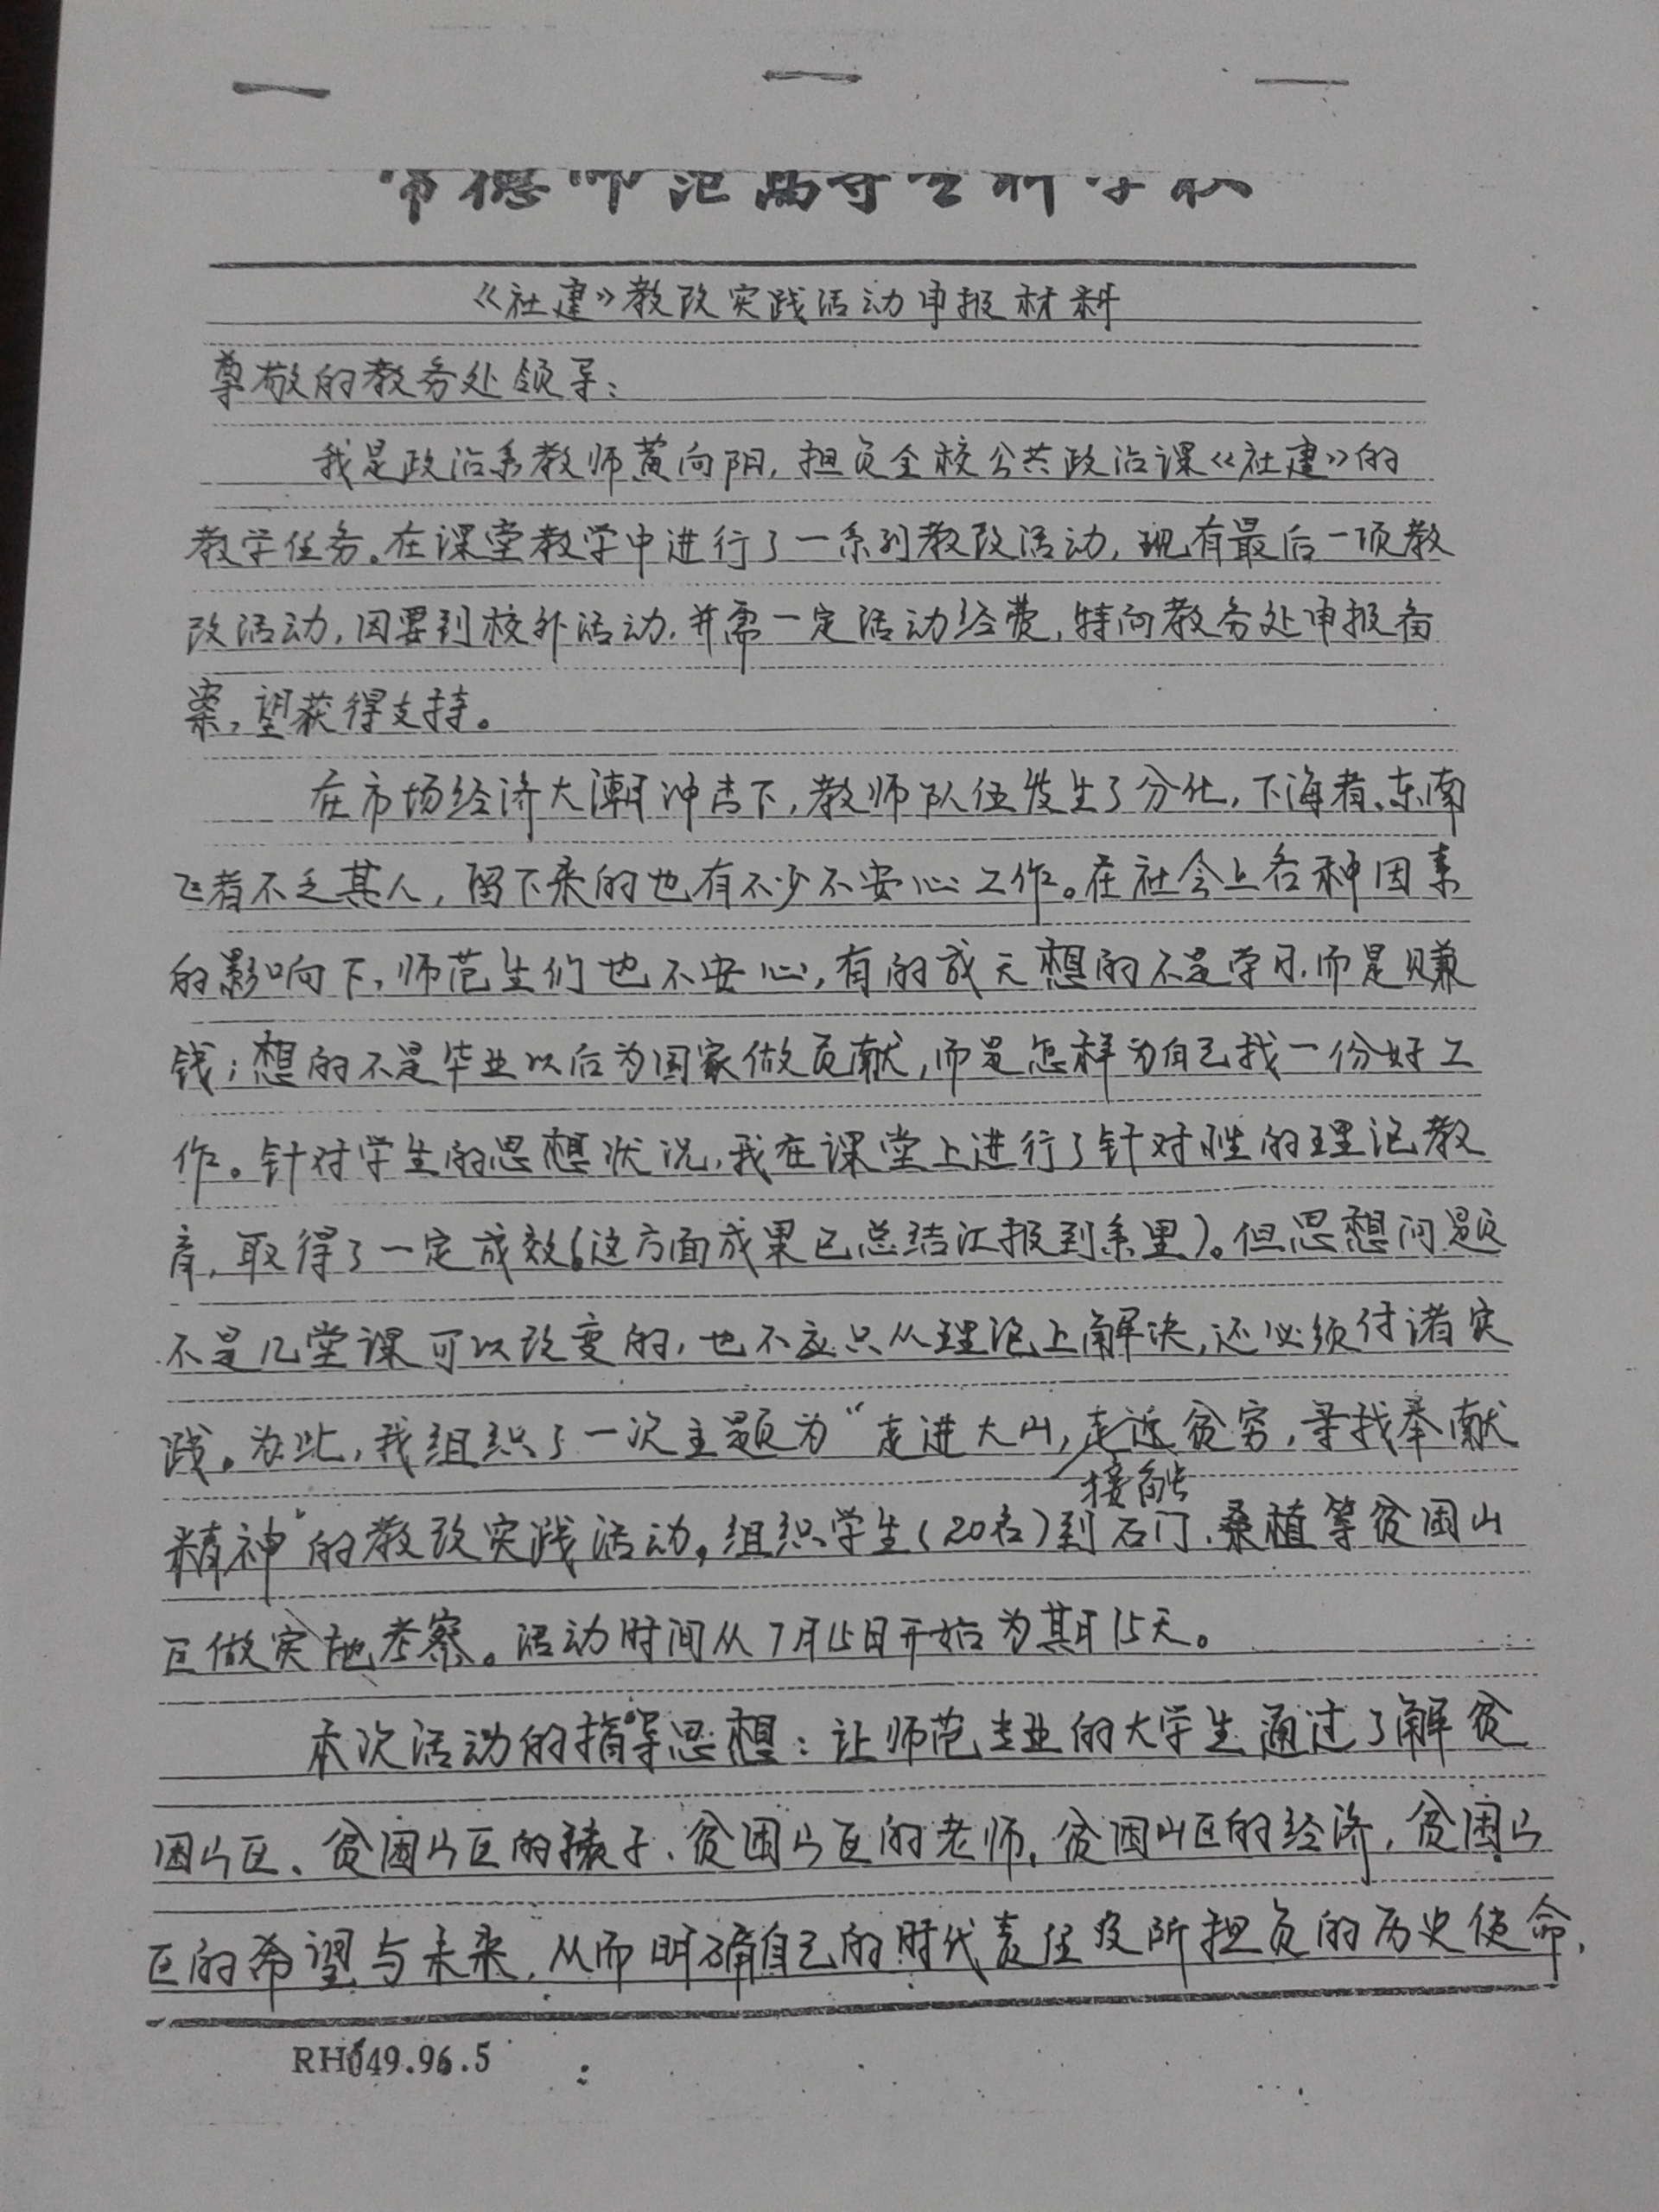 常德师范高等专科学校
《社建》教改实践活动申报材料
尊敬的教务处领导：
我是政治系教师黄向阳，担负全校公共政治课《社建》的
教学任务。在课堂教学中进行了一系列教改活动，现有最后一项教
改活动，因要到校外活动，并需一定活动经费，特向教务处申报备
案，望获得支持。
在市场经济大潮冲击下，教师队伍发生了分化，下海者、东南
飞者不乏其人，留下来的也有不少不安心工作。在社会上各种因素
的影响下，师范生们也不安心，有的成天想的不是学习，而是赚
钱；想的不是毕业以后为国家做贡献，而是怎样为自己找一份好工
作。针对学生的思想状况，我在课堂上进行了针对性的理论教
育，取得了一定成效（这方面成果已总结汇报到系里）。但思想问题
不是几堂课可以改变的，也不应只从理论上解决，还必须付诸实
践。为此，我组织了一次主题为“走进大山，走近贫穷，寻找奉献
接触
精神”的教改实践活动。组织学生（20名）到石门、桑植等贫困山
区做实地考察。活动时间从7月15日开始为期15天。
本次活动的指导思想：让师范专业的大学生通过了解贫
困山区、贫困山区的孩子、贫困山区的老师、贫困山区的经济，贫困山
区的希望与未来，从而明确自己的时代责任及所担负的历史使命，
RH049.96.5